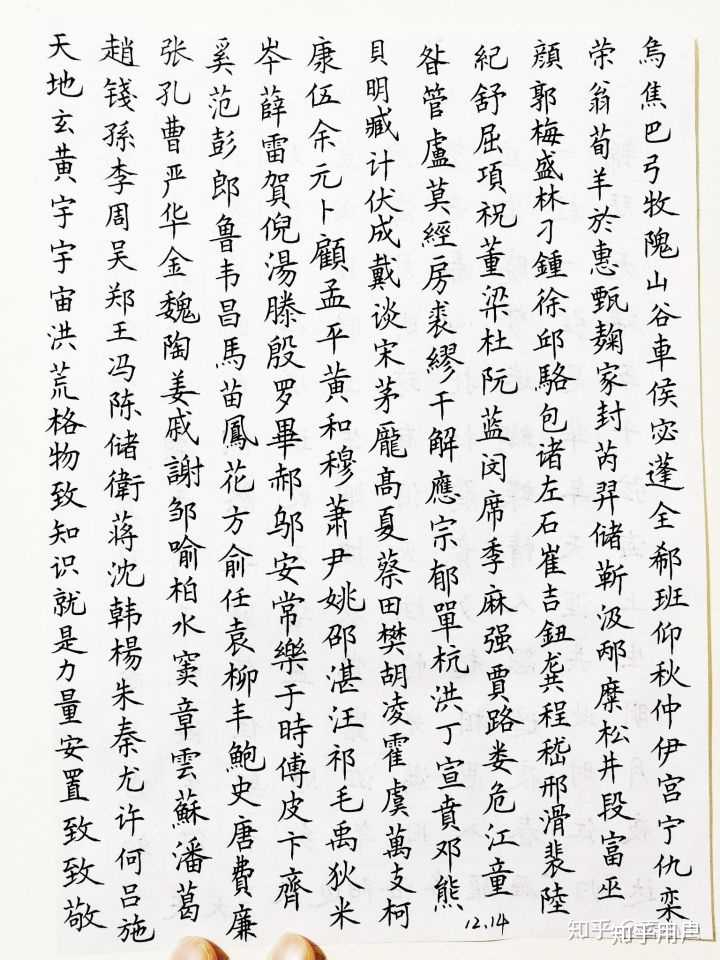 天地玄黄宇宇宙洪荒格物致知识就是力量安置致致敬
趙錢孫李周吴郑王冯陈储衛蒋沈韩楊朱秦尤许何吕施
张孔曹严华金魏陶姜戚謝邹喻柏水窦章雲蘇潘葛
奚范彭郎鲁韦昌馬苗鳳花方俞任袁柳丰鮑史唐費廉
岑薛雷賀倪湯滕殷罗畢郝邬安常樂于時傅皮卞齊
康伍余元卜顧孟平黄和穆萧尹姚邵湛汪祁毛禹狄米
貝明臧计伏成戴谈宋茅龐高夏蔡田樊胡凌霍虞萬支柯
昝管盧莫經房裘繆干解應宗郁單杭洪丁宣賁邓熊
紀舒屈項祝董梁杜阮蓝闵席季麻强賈路娄危江童
12.14
顔郭梅盛林刁鍾徐邱駱包诸左石崔吉鈕龚程嵇邢滑裴陸
荣翁荀羊於惠甄麹家封芮羿储靳汲邴糜松井段富巫
烏焦巴弓牧隗山谷車侯宓蓬全郗班仰秋仲伊宫宁仇栾
知乎用户